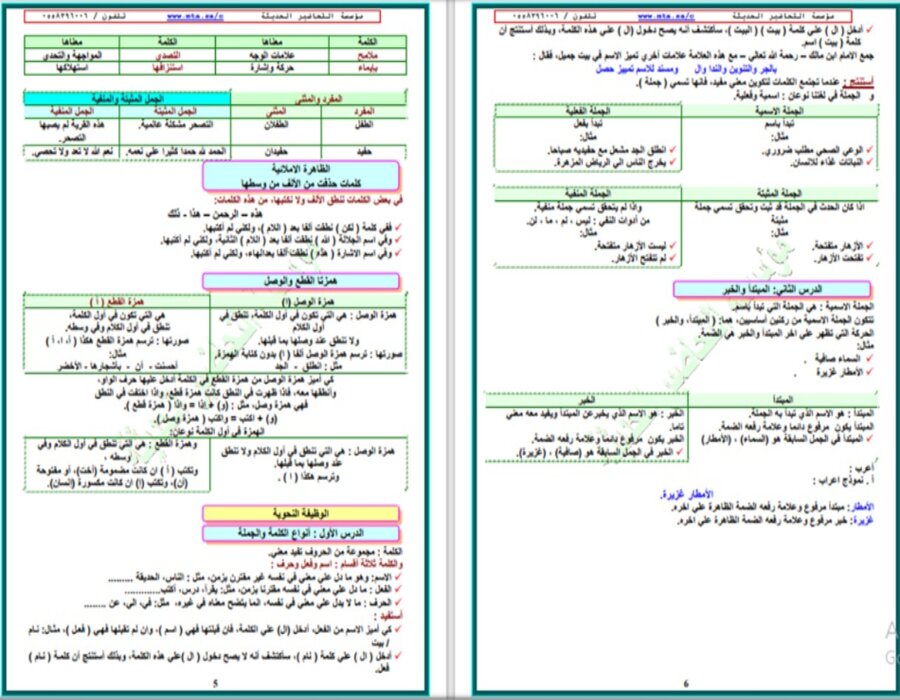 مؤسسة التحاضير الحديثة www.mta.sa/c تلفون / ٠٥٥٨٣٩٦٠٠٦
الكلمة معناها الكلمة معناها
ملامح علامات الوجه التصدي المواجهة والتحدي
بإيماء حركة وإشارة استنزافها استهلاكها
المفرد والمثنى الجمل المثبتة والمنفية
المفرد المثنى الجمل المثبتة الجمل المنفية
الطفل الطفلان التصحر مشكلة عالمية. هذه القرية لم يصبها
التصحر.
حفيد حفيدان الحمد لله حمدا كثيرا علي نعمه. نعم الله لا تعد ولا تحصي.
الظاهرة الاملائية
كلمات حذفت من الألف من وسطها
في بعض الكلمات تنطق الألف ولا نكتبها، من هذه الكلمات:
هذه – الرحمن – هذا - ذلك
ففي كلمة ( لكن ) نطقت ألفا بعد ( اللام )، ولكني لم أكتبها.
وفي اسم الجلالة ( الله ) نطقت ألفا بعد ( اللام ) الثانية، ولكني لم أكتبها.
وفي اسم الاشارة ( هذه ) نطقت ألفا بعدالهاء، ولكني لم أكتبها.
همزتا القطع والوصل
همزة الوصل (ا) همزة القطع ( أ )
همزة الوصل : هي التي تكون في أول الكلمة، تنطق في
أول الكلام
ولا تنطق عند وصلها بما قبلها.
صورتها : ترسم همزة الوصل ألفا ( ا) بدون كتابة الهمزة.
مثل : انطلق - الجد
هي التي تكون في أول الكلمة،
تنطق في أول الكلام وفي وسطه.
صورتها : ترسم همزة القطع هكذا ( أ، ا، أ )
مثال:
أحسنت - أن - بأشجارها - الأخضر
كي أميز همزة الوصل من همزة القطع في الكلمة أدخل عليها حرف الواو،
وأنطقها معه، فاذا ظهرت في النطق كانت همزة قطع، واذا اختفت في النطق
فهي همزة وصل، مثل : (و) + إذا = وإذا ( همزة قطع ).
(و) + اكتب = واكتب ( همزة وصل ).
الهمزة في أول الكلمة نوعان:
همزة الوصل : هي التي تنطق في أول الكلام ولا تنطق
عند وصلها بما قبلها.
وترسم هكذا ( ا ) .
وهمزة القطع : هي التي تنطق في أول الكلام وفي
وسطه ،
وتكتب ( أ ) ان كانت مضمومة (أخت)، أو مفتوحة
(أن)، وتكتب (ا) ان كانت مكسورة (إنسان).
الوظيفة النحوية
الدرس الأول : أنواع الكلمة والجملة
الكلمة : مجموعة من الحروف تفيد معني.
والكلمة ثلاثة أقسام : اسم وفعل وحرف :
الاسم: وهو ما دل علي معني في نفسه غير مقترن بزمن، مثل : الناس، الحديقة .........
الفعل : ما دل علي معني في نفسه مقترنا بزمن، مثل: يقرأ، درس، أكتب.............
الحرف : ما لا يدل علي معني في نفسه، انما يتضح معناه في غيره، مثل: في، الي، عن ........
أستفيد :
كي أميز الاسم من الفعل، أدخل (ال) علي الكلمة، فان قبلتها فهي ( اسم )، وان لم تقبلها فهي ( فعل )، مثال: نام
/ بيت
أدخل ( ال ) علي كلمة ( نام )، سأكتشف أنه لا يصح دخول ( ال )علي هذه الكلمة، وبذلك أستنتج أن كلمة ( نام )
فعل.
5
مؤسسة التحاضير الحديثة www.mta.sa/c تلفون / ٠٥٥٨٣٩٦٠٠٦
أدخل ( ال ) علي كلمة ( بيت ) ( البيت )، سأكتشف أنه يصح دخول (ال ) علي هذه الكلمة، وبذلك أستنتج أن
كلمة ( بيت ) اسم.
جمع الامام ابن مالك – رحمة الله تعالي – مع هذه العلامة علامات أخري تميز الاسم في بيت جميل، فقال :
بالجر والتنوين والندا وال ومسند للاسم تمييز حصل
أستنتج : عندما تجتمع الكلمات لتكوين معني مفيد، فانها تسمي ( جملة ).
و الجملة في لغتنا نوعان : اسمية وفعلية.
الجملة الاسمية الجملة الفعلية
تبدأ باسم تبدأ بفعل
مثال: مثال:
الوعي الصحي مطلب ضروري. انطلق الجد مشعل مع حفيديه صباحا.
النباتات غذاء للانسان. يخرج الناس الي الرياض المزهرة.
الجملة المثبتة الجملة المنفية
اذا كان الحدث في الجملة قد ثبت وتحقق تسمي جملة
مثبتة
مثال:
الأزهار متفتحة.
تفتحت الأزهار.
واذا لم يتحقق تسمي جملة منفية.
من أدوات النفي : ليس ، لم ، ما ، لن.
مثال:
ليست الأزهار متفتحة.
لم تتفتح الأزهار.
الدرس الثاني: المبتدأ والخبر
الجملة الاسمية : هي الجملة التي تبدأ باسم.
تتكون الجملة الاسمية من ركنين أساسيين، هما: ( المبتدأ، والخبر )
الحركة التي تظهر علي اخر المبتدأ والخبر هي الضمة.
مثال:
السماء صافية .
الأمطار غزيرة .
المبتدأ الخبر
المبتدأ : هو الاسم الذي تبدأ به الجملة.
المبتدأ يكون مرفوع دائما وعلامة رفعه الضمة.
المبتدأ في الجملة السابقة هو (السماء) ، (الأمطار)
الخبر : هو الاسم الذي يخبرعن المبتدأ ويفيد معه معني
تاما.
الخبر يكون مرفوع دائما وعلامة رفعه الضمة.
الخبر في الجمل السابقة هو (صافية) ، (غزيرة).
أعرب :
أ . نموذج اعراب :
الأمطار غزيرة.
الأمطار: مبتدأ مرفوع وعلامة رفعه الضمة الظاهرة علي اخره.
غزيرة: خبر مرفوع وعلامة رفعه الضمة الظاهرة علي اخره.
6